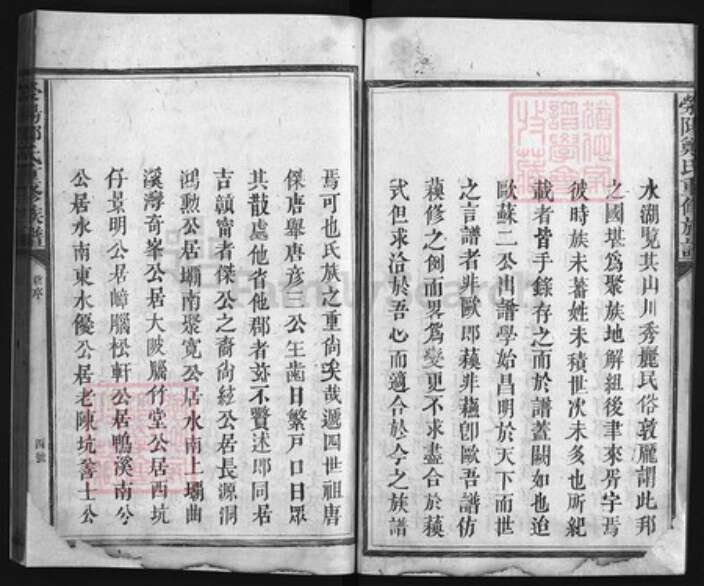 水湖覽其山川秀麗民俗敦龐謂此邦
之國堪為聚族地解組後聿來胥宇焉
彼時族未蕃姓未積世次未多也所紀
載者皆手錄存之而於譜蓋闕如也迨
歐蘇二公出譜學始昌明於天下而世
之言譜者非歐即蘇非蘇即歐吾譜仿
蘇修之例而畧為變更不求盡合於蘇
式但求洽於吾心而適合於今之族譜
焉可也氏族之重尚矣哉遞四世祖唐
傑唐舉唐彥三公生齒日繁戶口日眾
其散處他省他郡者茲不贅述即同居
吉贛甯者傑公之裔尚絃公居長源洞
鴻勲公居塥南聚寬公居水南上塥曲
溪灣奇峯公居大陂腦竹堂公居西坑
仔景明公居嶂腦松軒公居鴨溪南公
公居水南東水優公居老陳坑善士公
滎陽鄭氏重修族譜
四號
FamilySearch